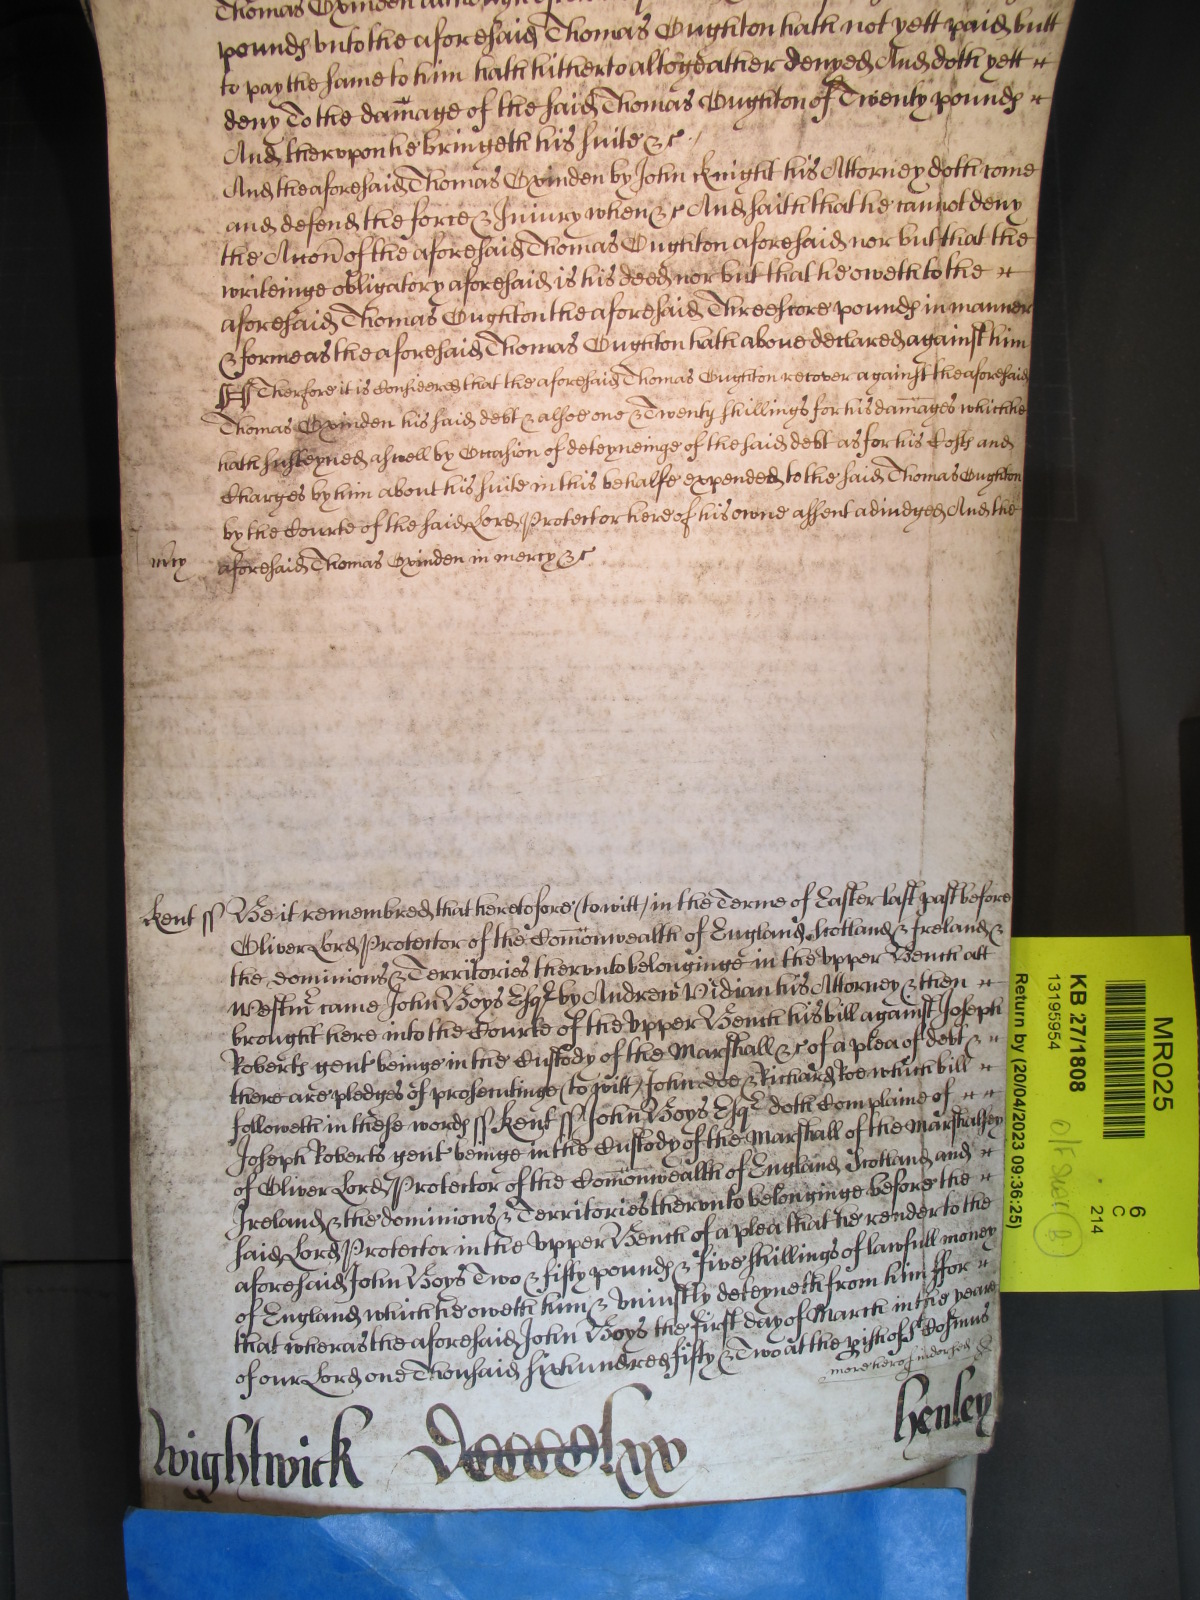 pounds vnto the aforesaid Thomas Oughton hath not yett paid butt
to pay the same to him hath hitherto altogeather denyed And doth yett
deny To the damage of the said Thomas Oughton of Twenty pounds
And thervpon he bringeth his suite &c
And the aforesaid Thomas Oxinden by John Knight his Attorney doth come
and defend the force & Injury when &c And saith that he cannot deny
the Accon of the aforesaid Thomas Oughton aforesaid nor but that the
writeinge obligatory aforesaid is his deed nor but that he oweth to the
aforesaid Thomas Oughton the aforesaid Threescore pounds in manner
& forme as the aforesaid Thomas Oughton hath aboue declared against him
Therfore it is Considered that the aforesaid Thomas Oughton recover against the aforesaid
Thomas Oxinden his said debt & alsoe one & Twenty shillings for his damages which he
hath susteyned aswell by Occasion of deteyneinge of the said debt as for his Costs and
Charges by him about his suite in this behalfe expended to the said Thomas Oughton
by the Courte of the said Lord Protector here of his owne assent adiudged And the
mcy aforesaid Thomas Oxinden in mercy &c
Kent ss Be it remembred that heretofore (to witt) in the Terme of Easter last past before
Oliver Lord Protector of the Comonwealth of England Scotland & Ireland &
the dominions & Territories thervnto belonginge in the vpper Bench att
Westmr came John Boys Esqr by Andrew Vidian his Attorney & then
brought here into the Courte of the vpper Bench his bill against Joseph
Roberts gent beinge in the Custody of the Marshall &c of a plea of debt &
there are pledges of prosecutinge (to witt) John doe & Richard Roe which bill
followeth in these words ss Kent ss John Boys Esqr doth Complaine of
Joseph Roberts gent beinge in the Custody of the Marshall of the Marshalsey
of Oliver Lord Protector of the Comonwealth of England Scotland and
Ireland & the dominions & Territories thervnto belonginge before the
said Lord Protector in the vpper Bench of a plea that he render to the
aforesaid John Boys Two & fifty pounds & five shillings of lawfull money
of England which he oweth him & vniustly deteyneth from him ffor
that wheras the aforesaid John Boys the first day of March in the yeare
of our Lord one Thousand six hundred fifty & Two at the pish of St Cosmus
more hereof indorsed
Wightwick Dcccclxxv Henley
MR025
6
C
214
KB 27/1808
13195954
Return by (20/04/2023 09:36:25)